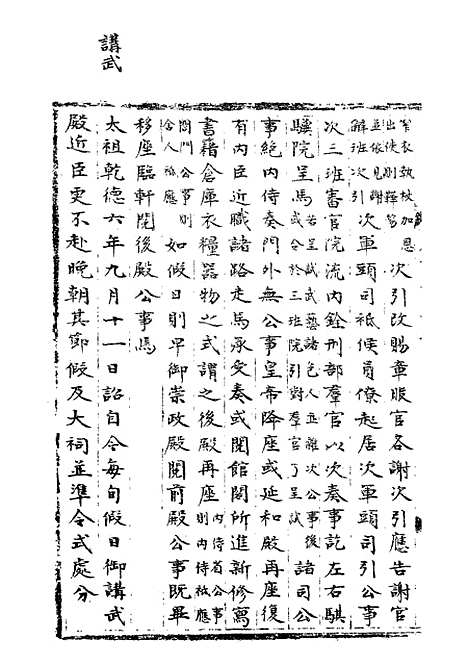 講武
窄衣執杖加恩出使則釋笏次引改賜章服官各謝次引應告謝官
並依見謝辭班次引次軍頭司祗候員僚起居次軍頭司引公事
次三班審官院流内銓刑部羣官以次奏事訖左右騏
驥院呈馬若呈試武藝諸色人並離次公事後或令於三班院引對羣官了呈試諸司公
事絶内侍奏門外無公事皇帝降座或延和殿再座復
有内臣近職諸路走馬承受奏或閱館閣所進新修寫
書籍倉庫衣糧器物之式謂之後殿再座内侍省公事則内侍祗應
閤門公事則舍人祗應如假日則平御崇政殿閱前殿公事既畢
移座臨軒閱後殿公事焉
太祖乾德六年九月十一日詔自今每旬假日御講武
殿近臣更不赴晚朝其節假及大祠並準令式處分